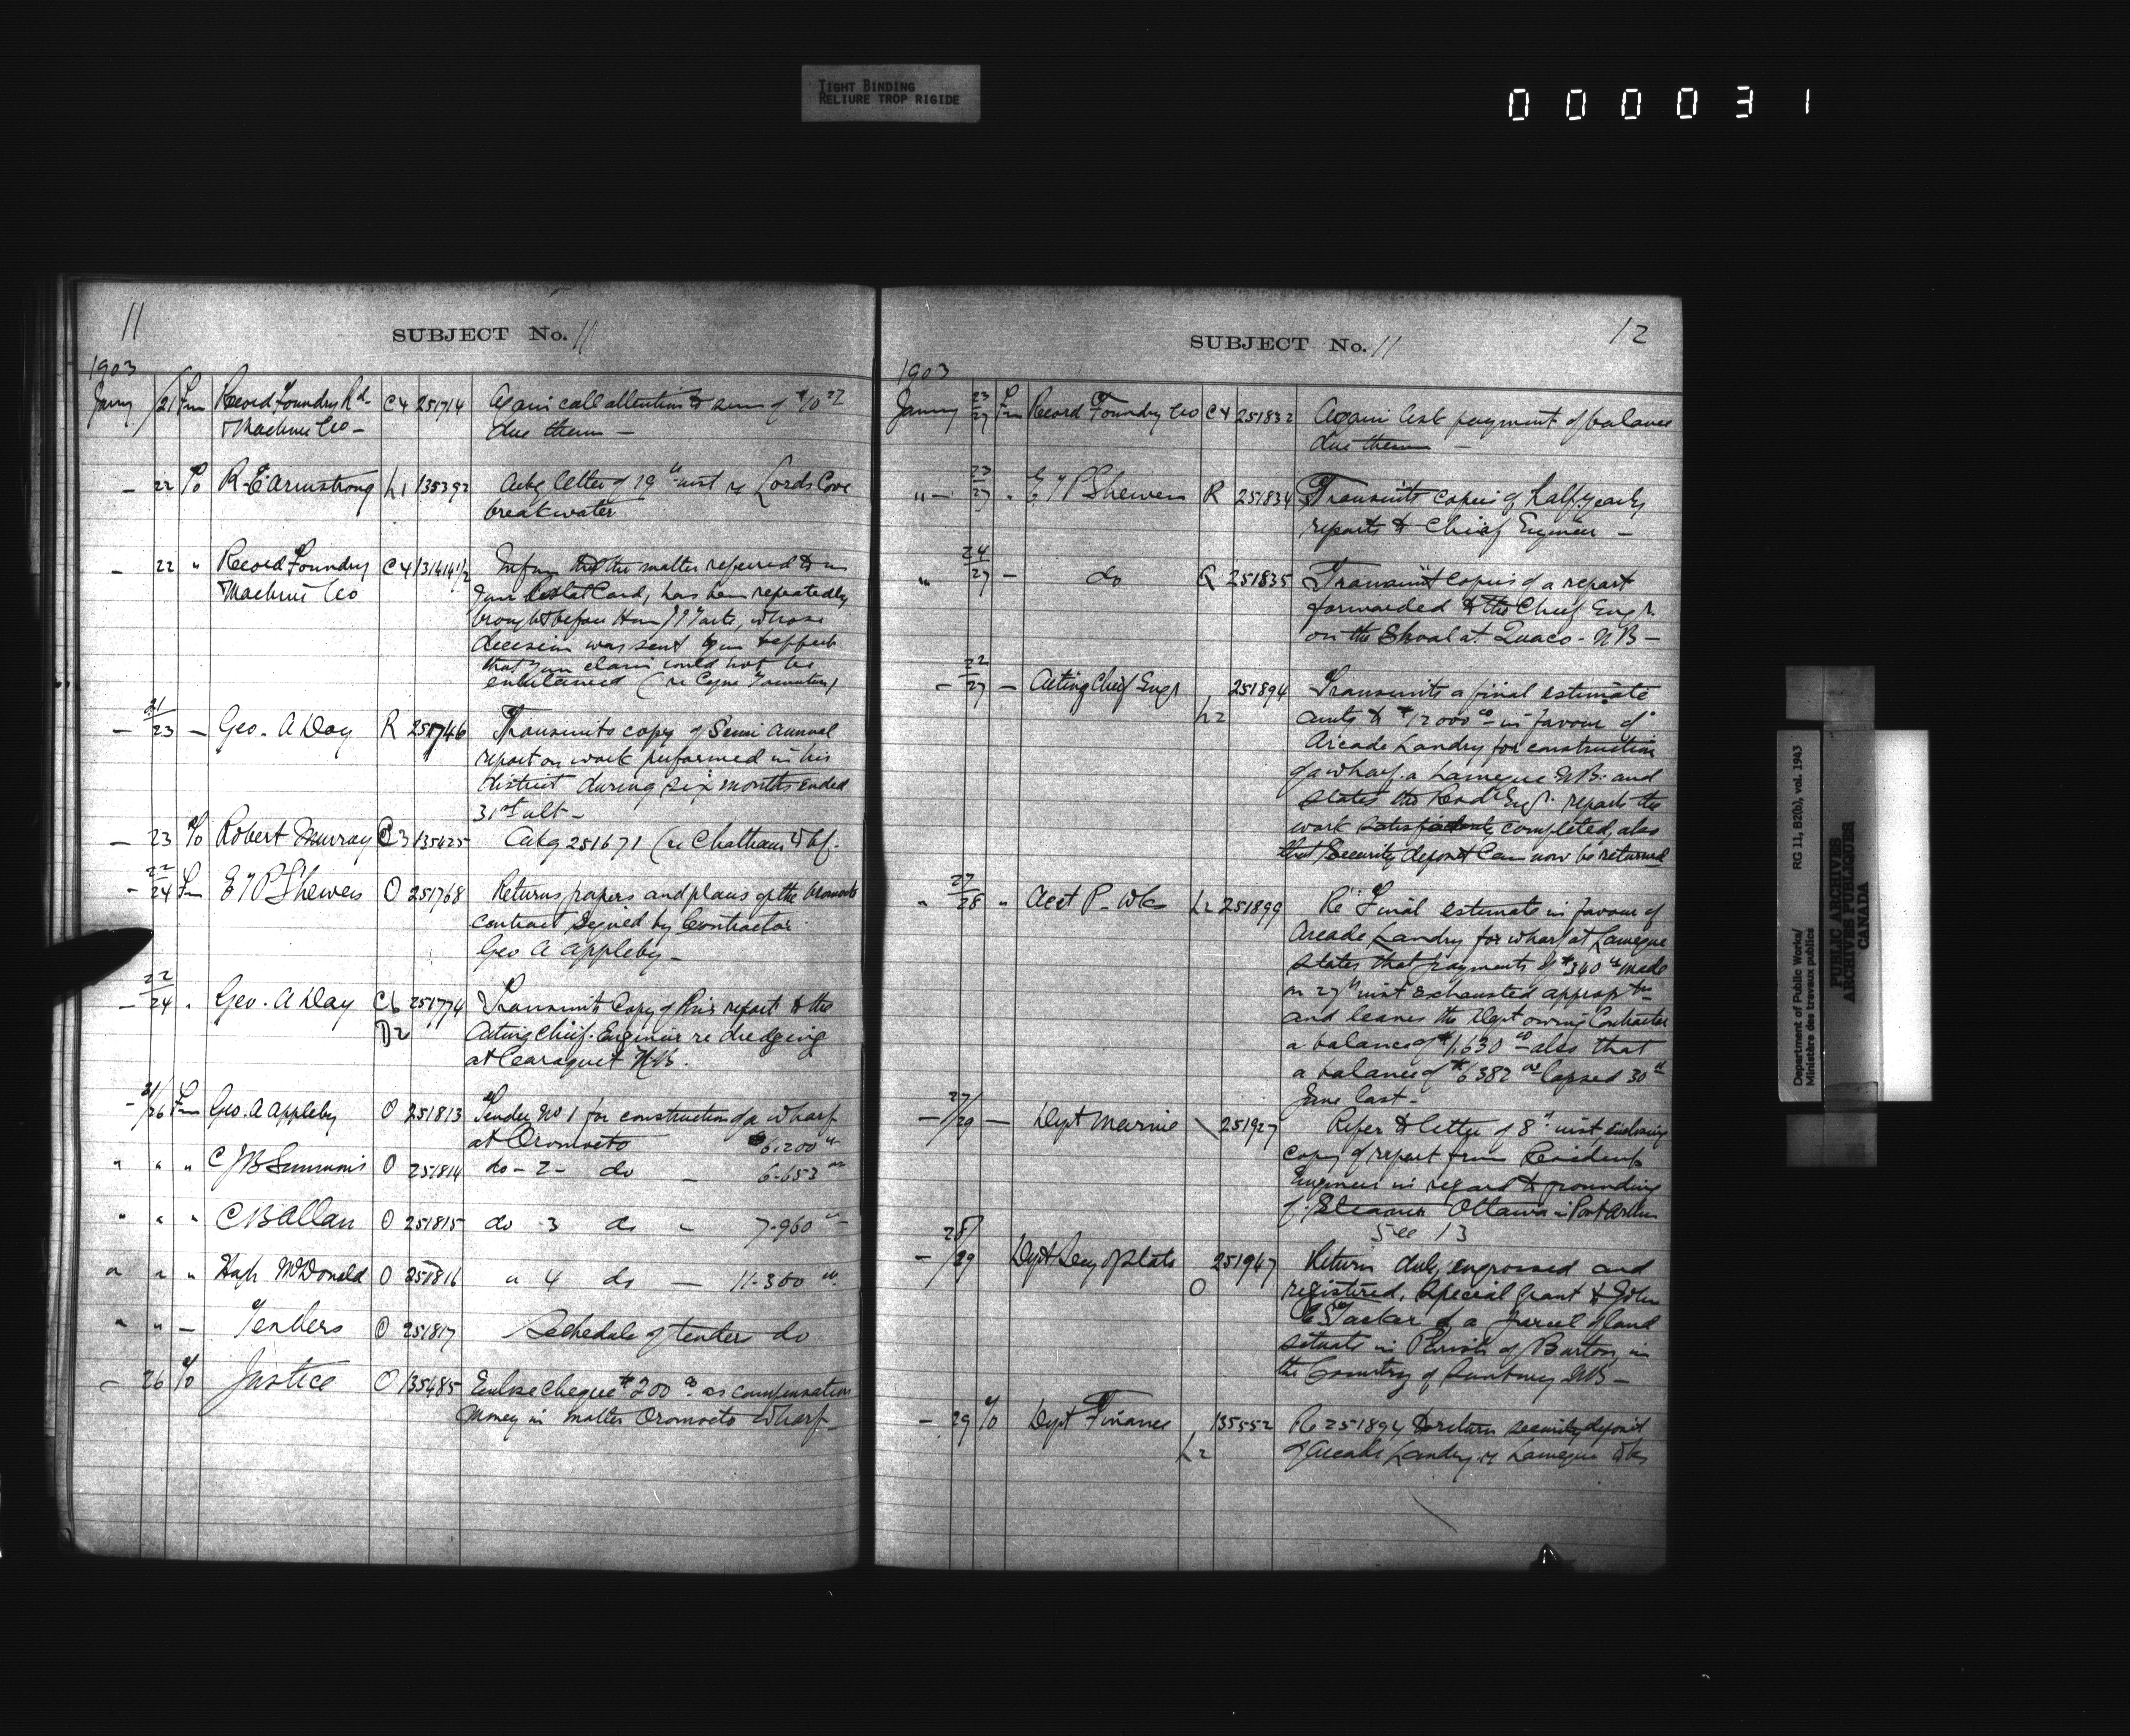 TIGHT BINDING
RELIURE TROP RIGIDE
000031
11
SUBJECT No. 11
1903
Janry /21 Fm Record Foundry & C4 251714 Again call attention to sum of $10 27
Machine Co - due them -
- 22 To R.E. Armstrong L1 135392 Ackg letter of 19th inst re Lords Cove
breakwater
- 22 " Record Foundry C4 131414 1/2 Inform that the matter referred to in
Machine Co your Postal Card, has been repeatedly
brought before Hon Tarte, whose
decision was sent you to effect
that your claim could not be
entertained (re
- 21/23 - Geo. A Day R 251746 Transmits copy of Semi Annual
report on work performed in his
district during six months ended
31st ult -
- 23 To Robert Murray C3 135425 Ackg 251671 (re Chatham Whf.
- 22/24 Fm E T P Shewen O 251768 Returns papers and plans of the Oromocto
contract signed by Contractor
Geo A Appleby -
- 22/24 " Geo. A Day C6 251774 Transmits Copy of his report to the
D2 Acting Chief Engineer re dredging
at Caraquet N.B.
- 21/26 Fm Geo. A Appleby O 251813 Tender No 1 for construction of a wharf
at Oromocto $6.200 00
" " " C J B Simmons O 251814 do - 2 - do - 6.653 00
" " " C B Allan O 251815 do 3 do - 7.960 00
" " " Hugh McDonald O 251816 " 4 do - 11.300 00
" " - Tenders O 251817 Schedule of tenders do
- 26 To Justice O 135485 Enclose cheque $200 00 as compensation
money in matter Oromocto Wharf
12
SUBJECT No. 11
1903
Janry 23/27 Fm Record Foundry Co C4 251832 Again ask payment of balance
due them -
" - 23/27 " E T P Shewen R 251834 Transmits copies of half-yearly
reports to Chief Engineer -
" 24/27 - do Q 251835 Transmit copies of a report
forwarded to the Chief Engr.
on the Shoal at Quaco - N B -
- 22/27 - Acting Chief Engr 251894 Transmits a final estimate
L2 amts to $12000 00 - in favour of
Arcade Landry for construction
of a wharf a Lameque N.B. and
states the Resdt Engr. reports the
work satisfactorily completed, also
that Security deposit can now be returned
" 27/28 " Acct P. Wks L2 251899 Re Final estimate in favour of
Arcade Landry for wharf at Lameque
states that payments of $340 00 made
on 27th inst exhausted approp tn
and leaves the Dept owing Contractor
a balance of $1,630 00 also that
a balance of $6382 00 lapsed 30th
June last -
- 27/29 - Dept Marine 251927 Refer to letter of 8th inst, enclosing
copy of report from Resident
Engineer in regard to grounding
of Steamer Ottawa in Port Arthur
See 13
- 28/29 Dept Secy of State 251947 Return duly engrossed and
O registered, Special Grant to John
E S Tasker of a parcel of land
situate in Parish of Burton, in
the Country of Sunbury NB -
- 29 To Dept Finance 135552 Re 251894 to return security deposit
L2 of Arcade Landry re Lameque Wks
Department of Public Works/ RG 11, B2(b), vol. 1943
Ministère des travaux publics
PUBLIC ARCHIVES
ARCHIVES PUBLIQUES
CANADA